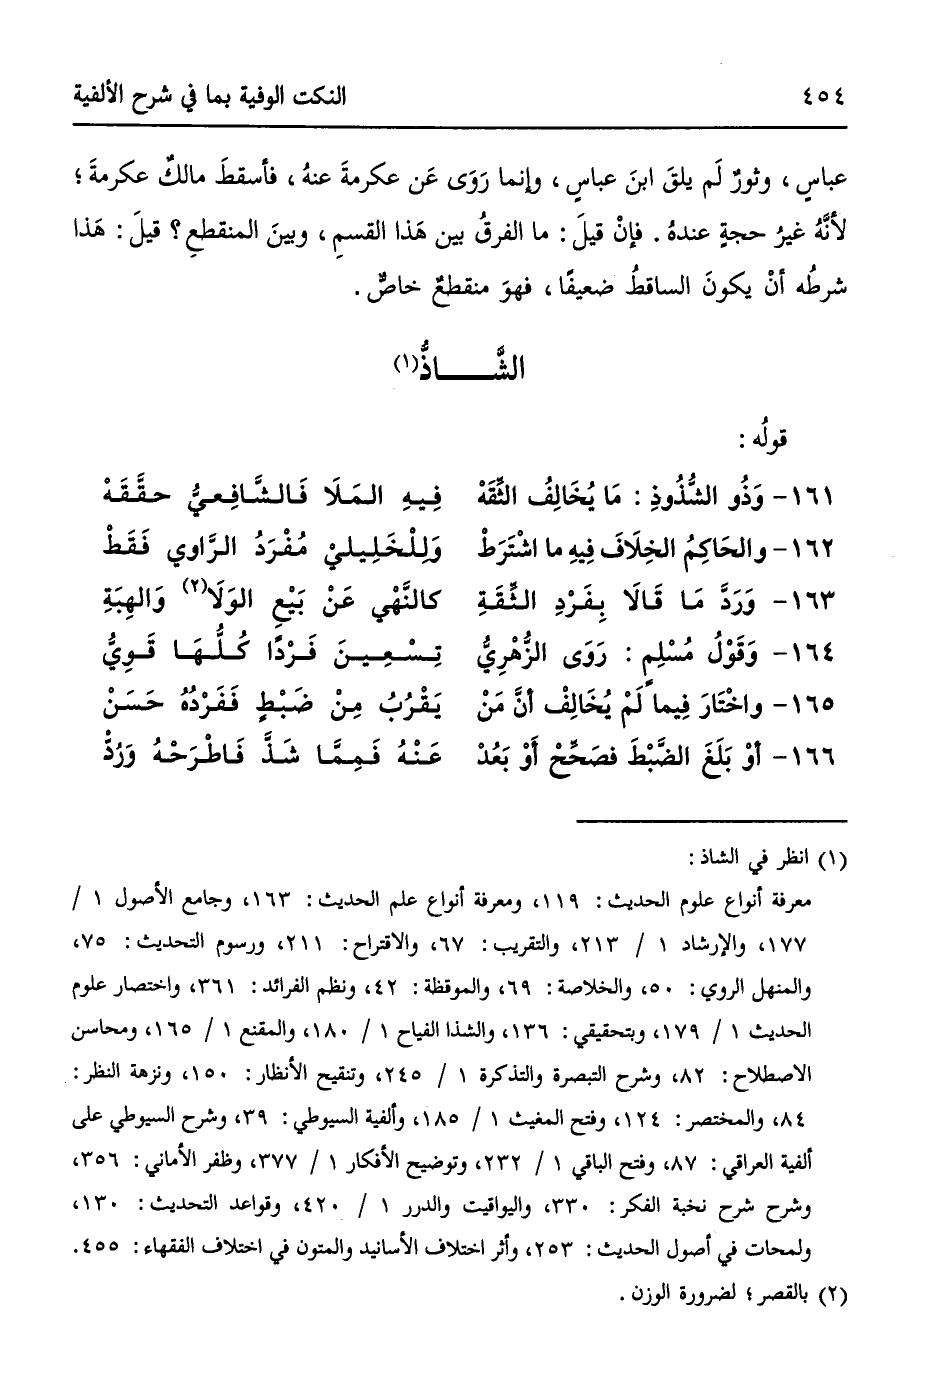 ٤٥٤ النكت الوفية بما في شرح الألفية
عباسٍ ، وثورٌ لَم يلقَ ابنَ عباسٍ ، وإنما رَوَى عَن عكرمةَ عنهُ ، فأسقطَ مالكٌ عكرمةَ ؛
لأنَّهُ غيرُ حجةٍ عندهُ . فإنْ قيلَ : ما الفرقُ بين هَذا القسمِ ، وبينَ المنقطعِ ؟ قيلَ : هَذا
شرطُه أنْ يكونَ الساقطُ ضعيفًا ، فهوَ منقطعٌ خاصٌّ .
الشَّـــــاذُّ(١)
قولُه :
١٦١- وَذُو الشُّذُوذِ : مَا يُخَالِفُ الثِّقَهْ فِيهِ المَلَا فَالشَّافِعيُّ حقَّقَهْ
١٦٢- والحَاكِمُ الخِلَافَ فِيهِ ما اشْتَرَطْ وَلِلْخَلِيلِيْ مُفْرَدُ الرَّاوي فَقَطْ
١٦٣- وَرَدَّ مَا قَالَا بِفَردِ الثِّقَةِ كالنَّهْي عَنْ بَيْعِ الوَلَا(٢) وَالهِبَةِ
١٦٤- وَقَوْلُ مُسْلِمٍ : رَوَى الزُّهْرِيُّ تِسْعِينَ فَرْدًا كُلُّهَا قَوِيُّ
١٦٥- واخْتَارَ فِيما لَمْ يُخَالِفْ أنَّ مَنْ يَقْرُبُ مِنْ ضَبْطٍ فَفَرْدُهُ حَسَنْ
١٦٦- أوْ بَلَغَ الضَّبْطَ فصَحِّحْ أَوْ بَعُدْ عَنْهُ فَمِمَّا شَذَّ فَاطْرَحْهُ وَرُدْ
(١) انظر في الشاذ :
معرفة أنواع علوم الحديث : ١١٩، ومعرفة أنواع علم الحديث : ١٦٣، وجامع الأصول ١ /
١٧٧، والإرشاد ١ / ٢١٣، والتقريب : ٦٧، والاقتراح : ٢١١، ورسوم التحديث : ٧٥،
والمنهل الروي : ٥٠، والخلاصة : ٦٩، والموقظة : ٤٢، ونظم الفرائد : ٣٦١، واختصار علوم
الحديث ١ / ١٧٩، وبتحقيقي : ١٣٦، والشذا الفياح ١ / ١٨٠، والمقنع ١ / ١٦٥، ومحاسن
الاصطلاح : ٨٢، وشرح التبصرة والتذكرة ١ / ٢٤٥، وتنقيح الأنظار : ١٥٠، ونزهة النظر :
٨٤، والمختصر : ١٢٤، وفتح المغيث ١ / ١٨٥، وألفية السيوطي : ٣٩، وشرح السيوطي على
ألفية العراقي : ٨٧، وفتح الباقي ١ / ٢٣٢، وتوضيح الأفكار ١ / ٣٧٧، وظفر الأماني : ٣٥٦،
وشرح شرح نخبة الفكر : ٣٣٠، واليواقيت والدرر ١ / ٤٢٠، وقواعد التحديث : ١٣٠،
ولمحات في أصول الحديث : ٢٥٣، وأثر اختلاف الأسانيد والمتون في اختلاف الفقهاء : ٤٥٥.
(٢) بالقصر ؛ لضرورة الوزن .